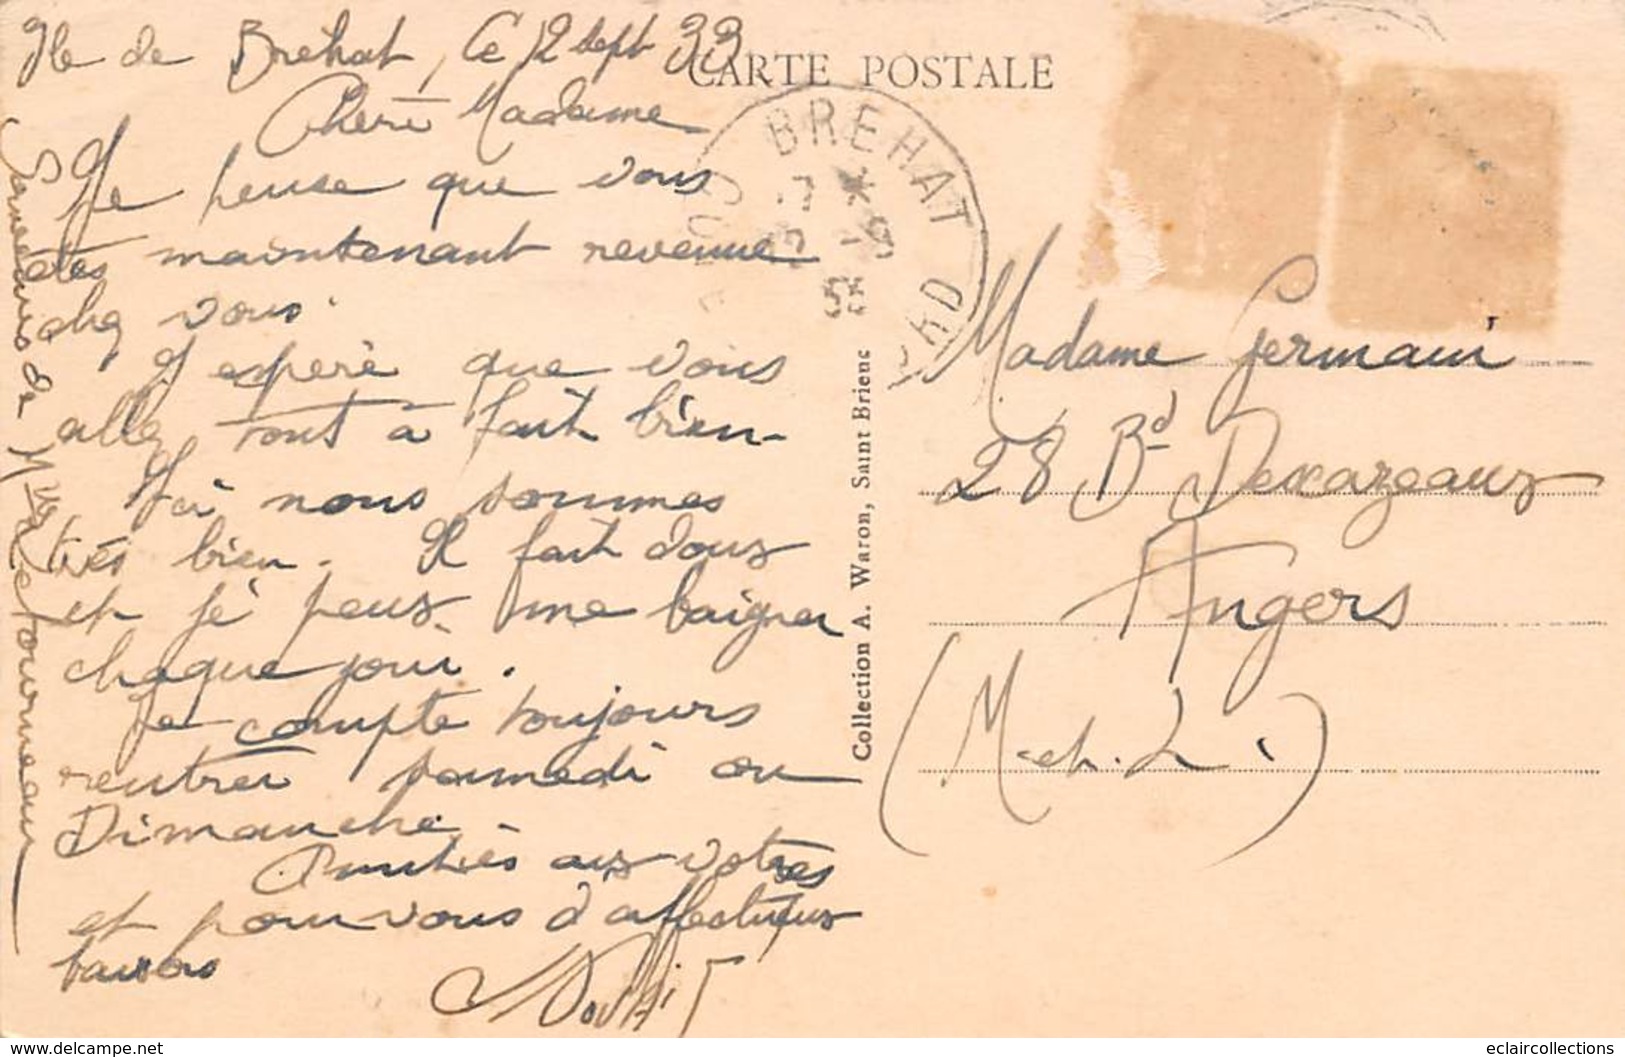 Ile de Bréhat, Ce 12 sept 33
CARTE POSTALE
Chère Madame
Je pense que vous
êtes maintenant revenue
chez vous.
J'espère que vous
allez tout à fait bien.
Ici nous sommes
très bien. Il fait doux
et je peux me baigner
chaque jour.
Je compte toujours
rentrer samedi ou
Dimanche.
Amitiés aux votres
et pour vous d'affectueux
baisers
Souvenirs de Mr et Tourneau
BREHAT
Collection A. Waron, Saint Brieuc
Madame Germain
28 Bd Descazeaux
Angers
(M. et. L.)
www.delcampe.net
eclaircollections